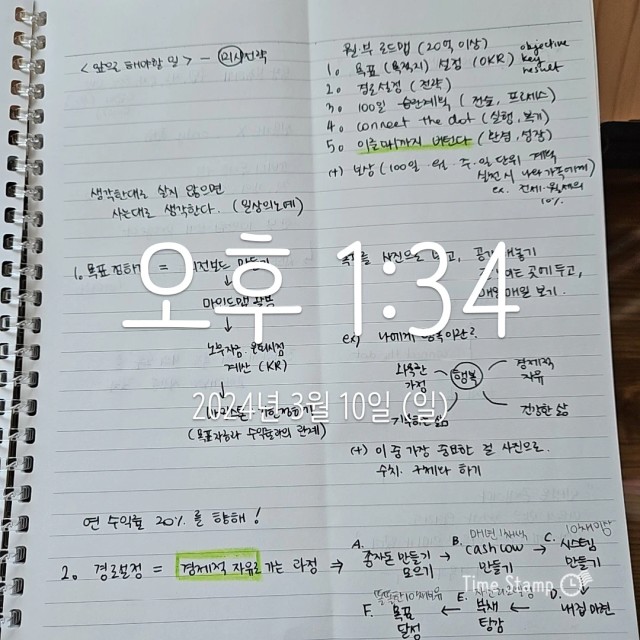 <앞으로 해야할 일> - 의사전략
생각한대로 살지 않으면
사는대로 생각한다. (일상의노예)
1. 목표 = 만들기
마인드맵
노후자금. 은퇴시점
계산 (KR)
(목표자금과 수익률과의 관계)
연 수익률 20%를 향해!
2. 경로설정 = 경제적 자유로 가는 과정 ⇒
월.부 로드맵 (20억 이상)
1. 목표 (목적지) 설정 (OKR) objective key result
2. 경로설정 (전략)
3. 100일 (전술, 프로세스)
4. connect the dot (실행, 복기)
5. 이룰때까지 버틴다 (반복, 성장)
(+) 보상 (100일 월. 주. 일 단위 계획
실천 시 나와 가족에게)
ex. 전세.월세의
10%
사진으로
곳에 두고,
매일매일 보기.
ex) 나에게 행복이란?
화목한
가정
행복
경제적
자유
건강한 삶
(+) 이 중 가장 중요한 걸 사진으로.
수치. 구체화 하기
A. 종잣돈 만들기
모으기
B. 매년 1채씩
cash flow
만들기
C. 10채 이상
시스템
만들기
D. 내집 마련
E. 부채
탕감
F. 목표
달성
오후 1:34
2024년 3월 10일 (일)
Time Stamp